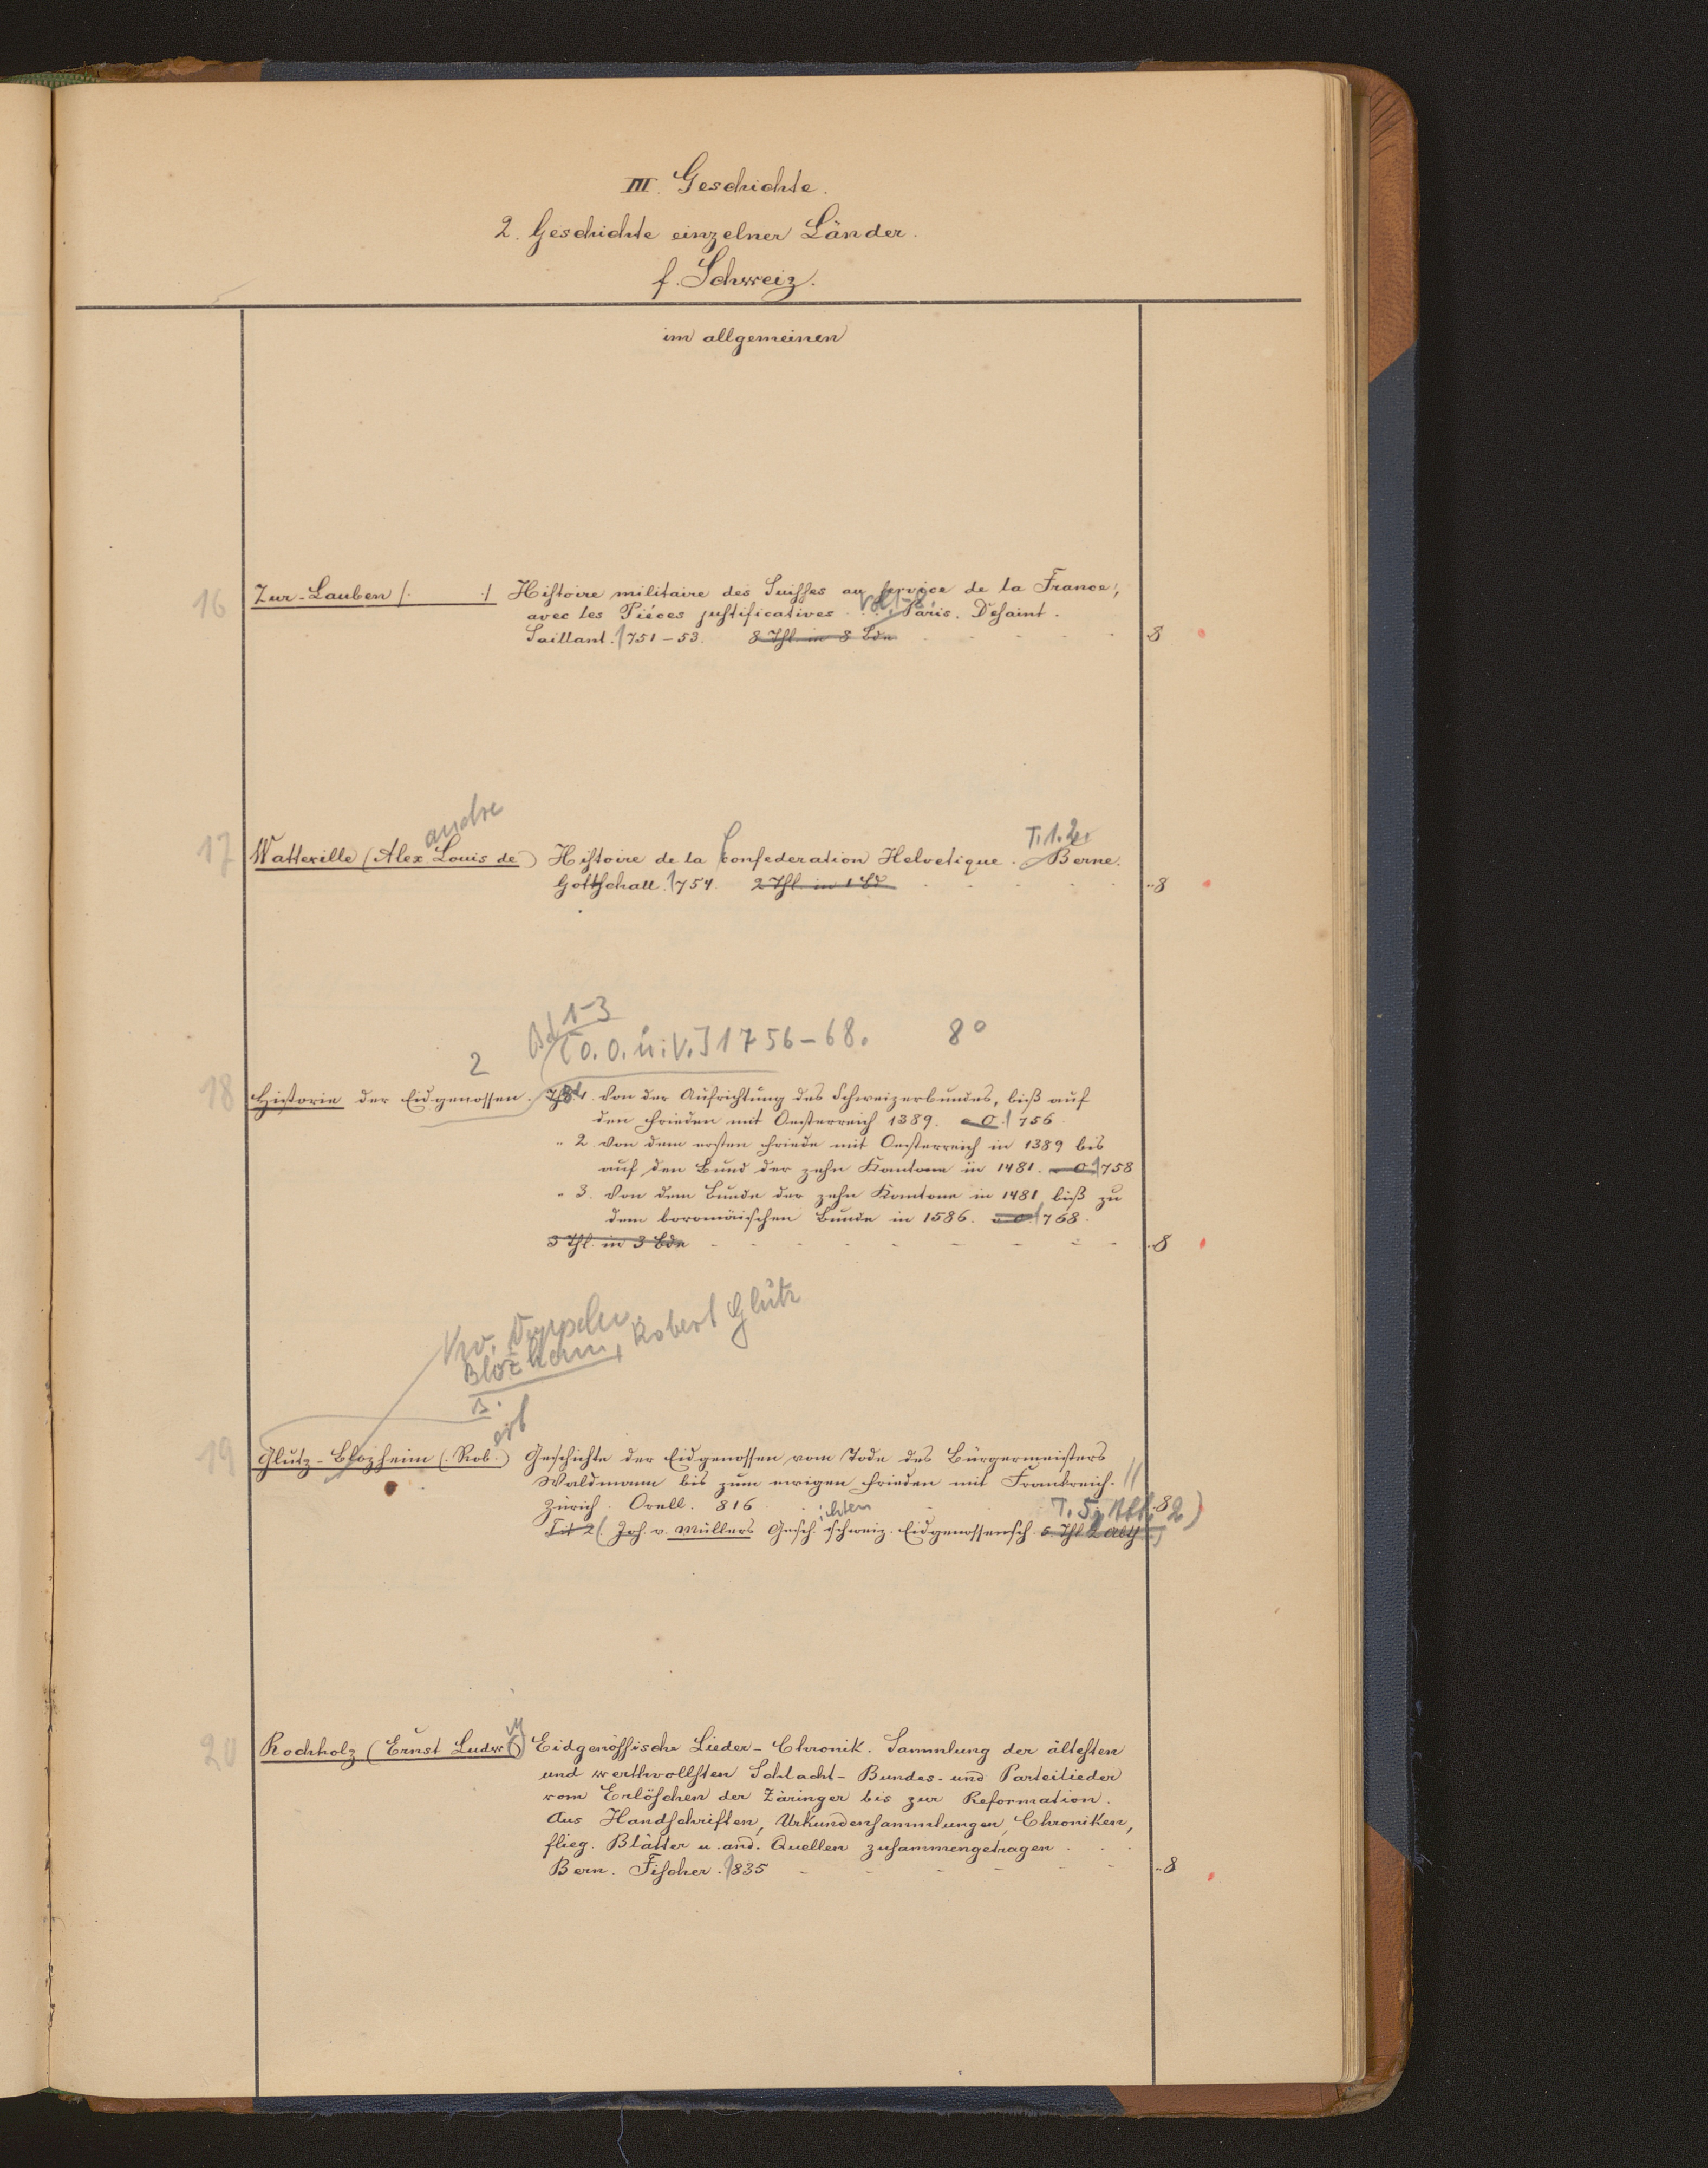 III. Geschichte.
2. Geschichte einzelner Länder.
f. Schweiz.
im allgemeinen
16 Zur-Lauben (. .) Histoire militaire des Suisses au service de la France,
avec les Piéces justificatives . . . Vol. 1-8. Paris. Desaint.
Saillant. 1751-53. 8 Thl. in 8 Bdn 8
andre
T. 1. 2.
17 Watteville (Alex. Louis de) Histoire de la Confederation Helvetique. Berne.
Gottschall. 1754. 2 Thl. in 1 Bd ..8
Bd 1-3
[o. O. u. V.] 1756-68. 8°
2
18 Historie der Eidgenossen. Thl 1. Von der Aufrichtung des Schweizerbundes, biß auf
den Frieden mit Oesterreich 1389. o O. 1756
" 2 Von dem ersten Friede mit Oesterreich in 1389 bis
auf den Bund der zehn Kantone in 1481. o O. 1758
" 3. Von dem Bunde der zehn Kantone in 1481 biß zu
dem boromäischen Bunde in 1586. o O. 1768.
3 Thl. in 3 Bdn .8
Vw. Doppeln
Blozheim, Robert Glutz
s.
ert
19 Glutz-Blozheim (. Rob.) Geschichte der Eidgenossen vom Tode des Bürgermeisters
Waldmann bis zum ewigen Frieden mit Frankreich.
Zürich. Orell. 816 .8
ichten T. 5, Abt. 2)
Tit 2 (Joh. v. Müllers Gesch. schweiz. Eidgenossensch. 5. Thl 2 Abth.)
20 Rochholz (Ernst Ludw.) Eidgenössische Lieder-Chronik. Sammlung der ältesten
und werthvollsten Schlacht- Bundes- und Parteilieder
vom Erlöschen der Zäringer bis zur Reformation.
Aus Handschriften, Urkundensammlungen, Chroniken,
flieg. Blätter u. and. Quellen zusammengetragen . . .
Bern. Fischer. 1835 ..8